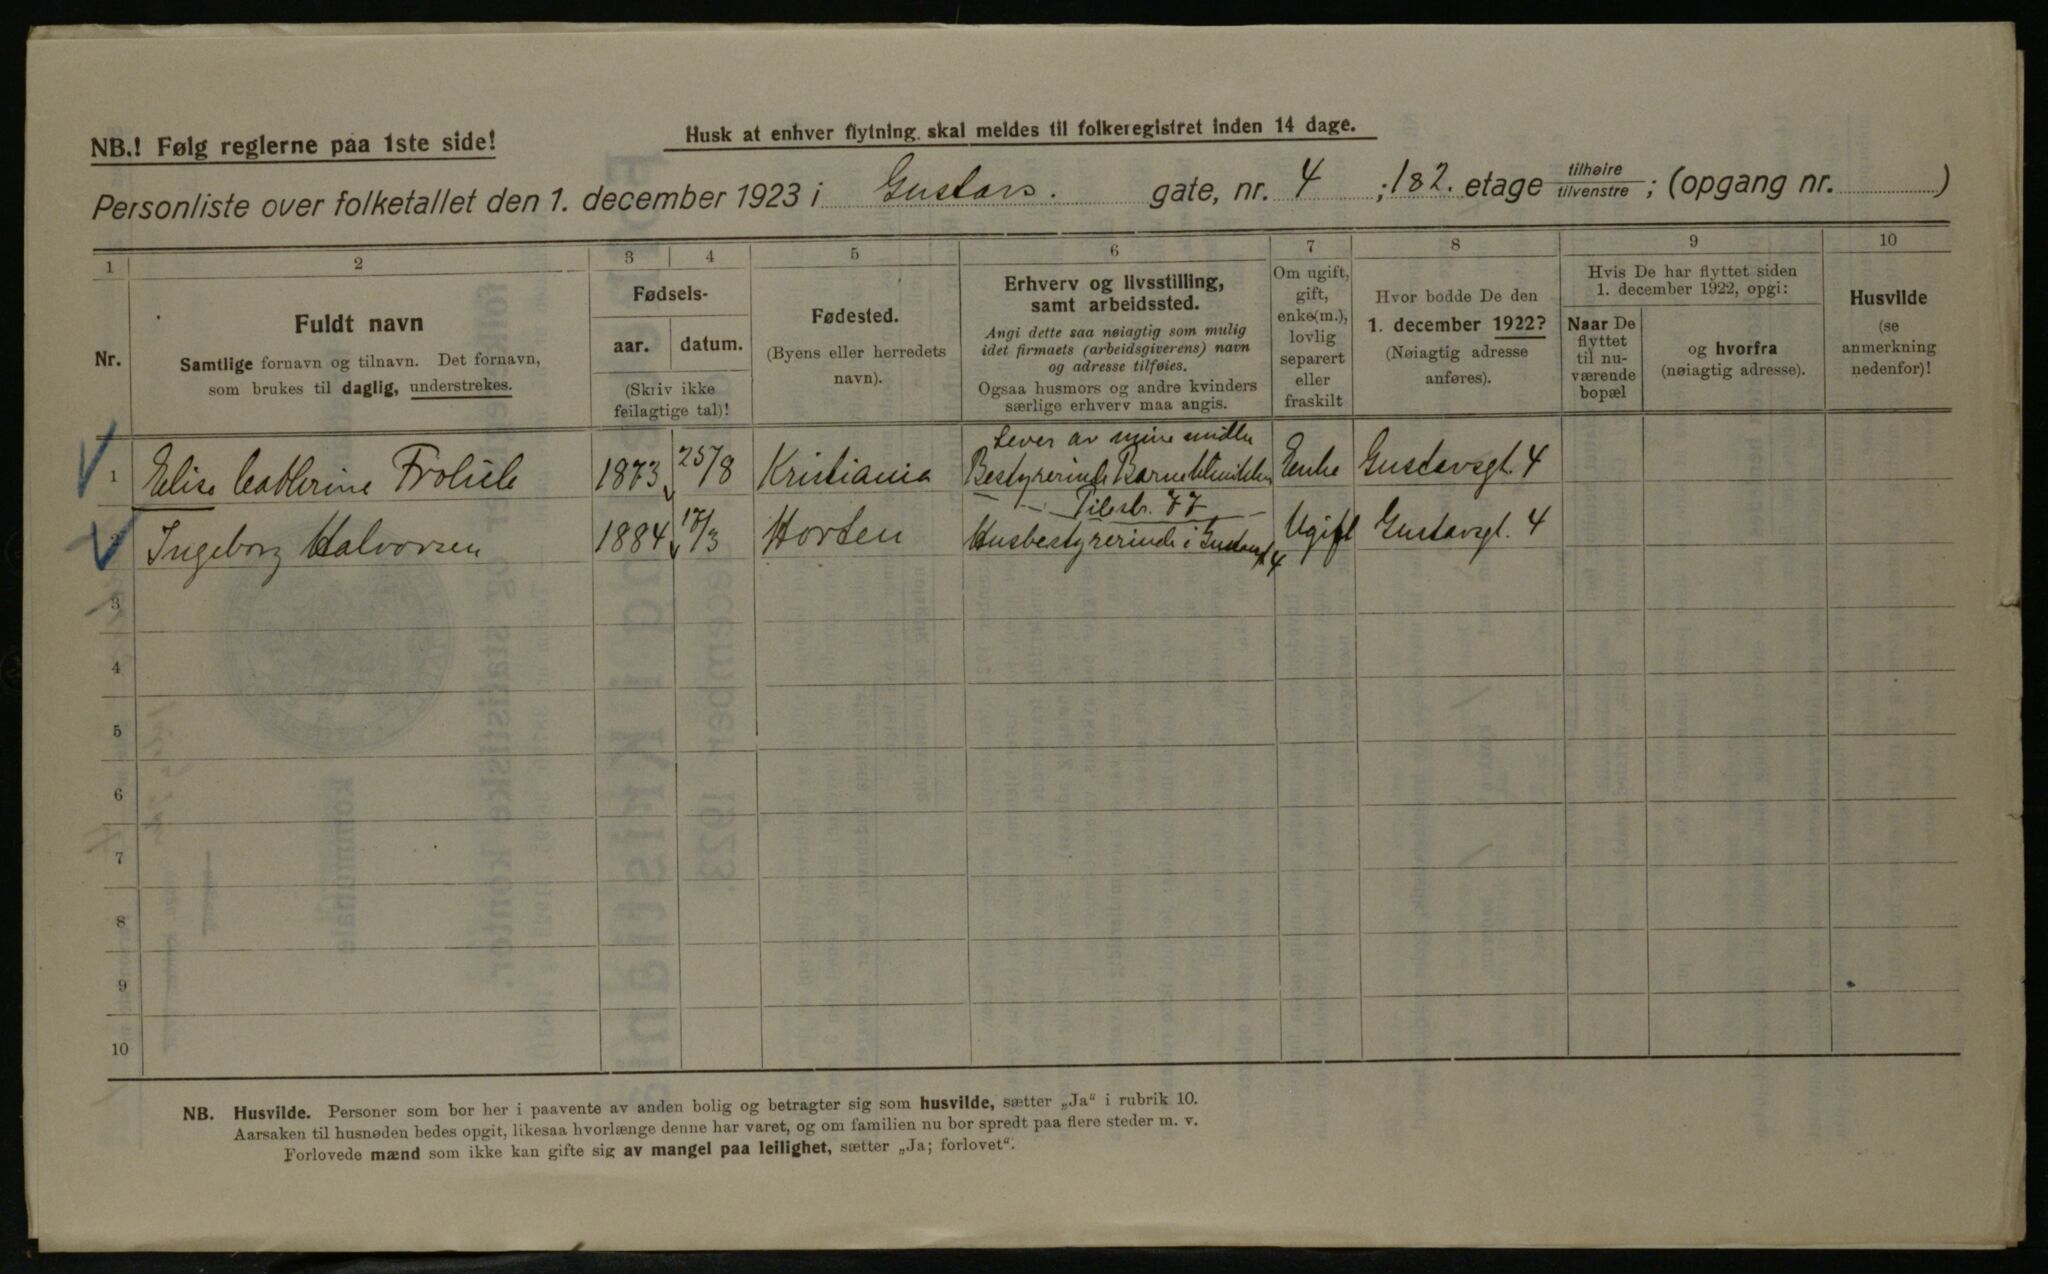 NB.! Følg reglerne paa 1ste side!
Husk at enhver flytning skal meldes til folkeregistret inden 14 dage.
Personliste over folketallet den 1. december 1923 i Gustavs. gate, nr. 4 ; 1&2. etage tilhøire tilvenstre ; (opgang nr. )
1 2 3 4 5 6 7 8 9 10
Nr.
Fuldt navn
Samtlige fornavn og tilnavn. Det fornavn,
som brukes til daglig, understrekes.
Fødsels-
aar. datum.
(Skriv ikke
feilagtige tal)!
Fødested.
(Byens eller herredets
navn).
Erhverv og livsstilling,
samt arbeidssted.
Angi dette saa nøiagtig som mulig
idet firmaets (arbeidsgiverens) navn
og adresse tilføies.
Ogsaa husmors og andre kvinders
særlige erhverv maa angis.
Om ugift,
gift,
enke(m.),
lovlig
separert
eller
fraskilt
Hvor bodde De den
1. december 1922?
(Nøiagtig adresse
anføres).
Hvis De har flyttet siden
1. december 1922, opgi:
Naar De
flyttet
til nu-
værende
bopæl
og hvorfra
(nøiagtig adresse).
Husvilde
(se
anmerkning
nedenfor)!
Lever av mine midler
1 Elise Cathrine Frølich 1873 25/8 Kristiania Bestyrerinde Enke Gustavsgt. 4
Pilestr. 77
2 Ingeborg Halvorsen 1884 17/3 Horten Husbestyrerinde i Gustavsgt 4 Ugift Gustavsgt. 4
3
4
5
6
7
8
9
10
NB. Husvilde. Personer som bor her i paavente av anden bolig og betragter sig som husvilde, sætter „Ja“ i rubrik 10.
Aarsaken til husnøden bedes opgit, likesaa hvorlænge denne har varet, og om familien nu bor spredt paa flere steder m. v.
Forlovede mænd som ikke kan gifte sig av mangel paa leilighet, sætter „Ja; forlovet“.